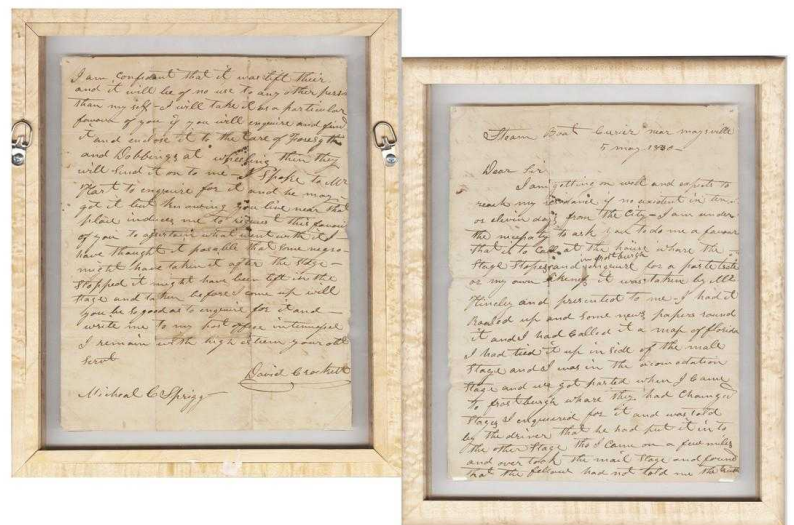 I am confident that it was left their
and it will be of no use to any other person
than my self - I will take it as a particular
favour of you if you will enquire and find
it and enclose it to the Care of Forsyth
and Dobbings at wheeling then they
will Send it on to me - I Spoke to Mr
to enquire for it and he may
got it but knowing you live near that
place induces me to request this favour
of you to assertain what went with it I
have thought it posable that some negro
might have taken it after the Stage
Stopped it might have been left in the
Stage and taken before I come up will
you be so good as to enquire for it and
write me to my post office in
I remain with high esteem your obt
Servt
David Crockett
Micheal C Sprigg
Steam Boat Curier near maysville
5 may 1830
Dear Sir
I am getting on well and expects to
reach my if no accident in ten
or elevin days from the City - I am under
the nesesaty to ask you to do me a favour
that is to Call at the house where the
in frostburgh
Stage Stopes and enquire for a
or my own likeness it was taken by Mr
Hincley and presented to me - I had it
Roaled up and Some news papers round
it and I had Called it a map of florida
I had tied it up in side of the male
Stage and I was in the acomodation
Stage and we got parted when I Came
to frostburgh whare they had Changed
Stages I enqueared for it and was told
by the driver that he had put it in to
the other Stage tho I Came on a few miles
and over took the mail Stage and found
that the fellow had not told me the truth